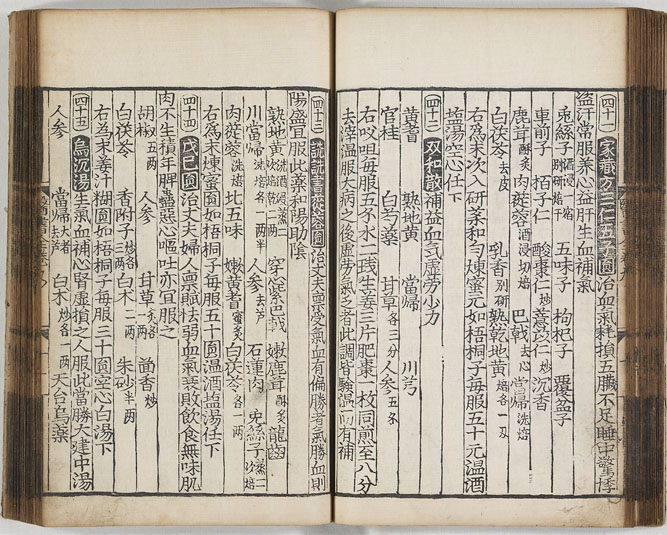 (四十一)家藏方三仁五子圓治血氣耗損五臟不足睡中驚悸
盜汗常服養心益肝生血補氣
兎絲子酒浸一宿別研焙干 五味子 枸杞子 覆盆子
車前子 栢子仁 酸棗仁炒 薏苡仁炒 沉香
鹿茸酥炙 肉蓯蓉酒浸切焙 巴戟去心 當帰洗焙
白茯苓去皮 乳香別研 熟乾地黄焙各一
右為末次入研藥和勻煉蜜元如梧桐子每服五十元温酒
盐湯空心任下
(四十二)双和散補益血氣虚勞少力
黄耆 熟地黄 當帰 川芎
官桂 白芍薬 甘草各三分 人参五
右㕮咀每服五水二戔生姜三片肥棗一枚同煎至八分
去滓温服大病之後虚勞氣乏者此調治験温而有補
(四十三)治丈夫禀受氣血有偏勝者氣勝血則
陽盛宜服此薬和陽助陰
熟地黄 穿心紫巴戟 嫩鹿茸酥炙 龍齒
川當帰洗焙各一兩半 人参去芦 石蓮肉 兎絲子
肉蓯蓉洗焙 北五味 嫩黄耆蜜炙 白茯苓各一兩
右為末煉蜜圓如梧桐子每服五十圓温酒盐湯任下
(四十四)戊己圓治丈夫婦人禀賦怯弱血氣衰敗飲食無味肌
肉不生積年脾蠱惡心嘔吐亦宜服之
胡椒五兩 人参 甘草 茴香炒
白茯苓 香附子 白术二兩 朱砂半兩
右為末姜汁糊圓如梧桐子每服三十圓空心白湯下
(四十五)烏沉湯生氣血補心腎虚損之人服此當勝大建中湯
人参 當帰去芦 白术炒各一兩 天台烏薬